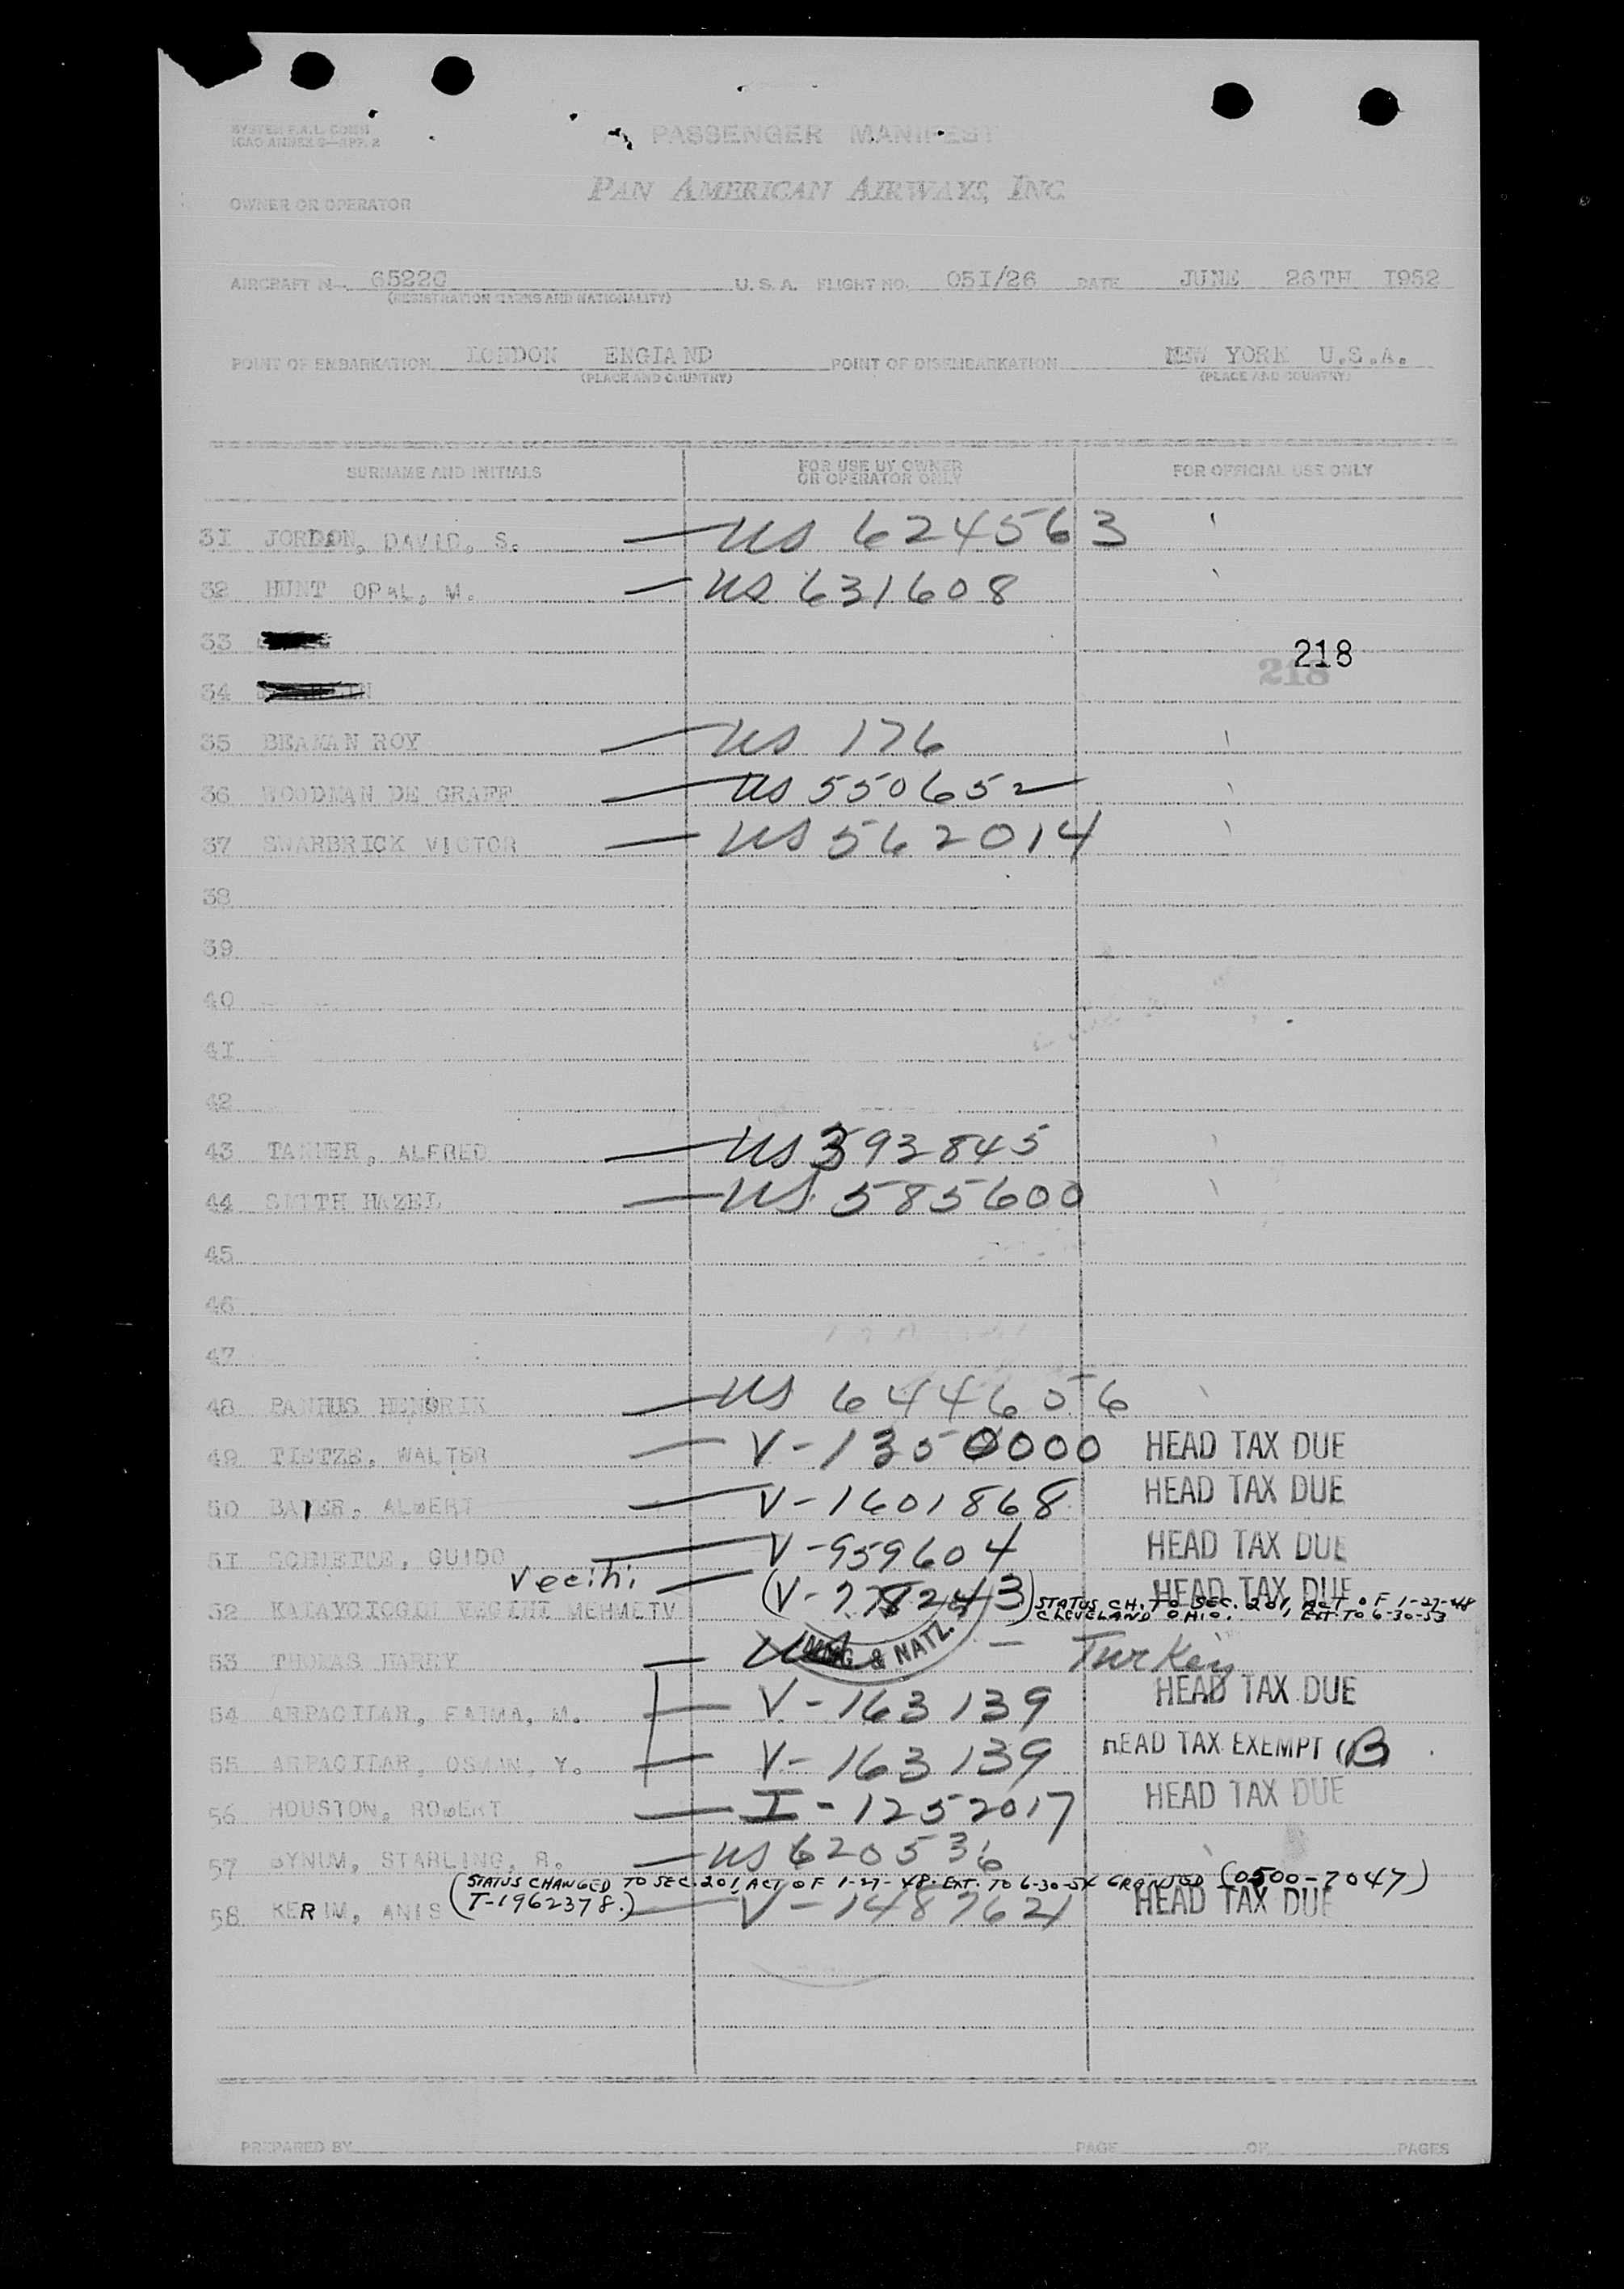 SYSTEM F.A.L. COMM
ICAO ANNEX 9—APP. 2
PASSENGER MANIFEST
OWNER OR OPERATOR
PAN AMERICAN AIRWAYS, INC.
AIRCRAFT N— 65220 U. S. A. FLIGHT NO. 051/26 DATE JUNE 26TH 1952
(REGISTRATION MARKS AND NATIONALITY)
POINT OF EMBARKATION LONDON ENGLAND POINT OF DISEMBARKATION NEW YORK U.S.A.
(PLACE AND COUNTRY) (PLACE AND COUNTRY)
SURNAME AND INITIALS FOR USE BY OWNER OR OPERATOR ONLY FOR OFFICIAL USE ONLY
31 JORDON, DAVID, S. — US 624563
32 HUNT OPAL, M. — US 631608
33
218
218
34
35 BEAMAN ROY — US 176
36 WOODMAN DE GRAFF — US 550652
37 SWARBRICK VICTOR — US 562014
38
39
40
41
42
43 TANNER, ALFRED — US 392845
44 SMITH HAZEL — US 585600
45
46
47
48 BANHUS HENDRIK — US 644656
49 TIETZE, WALTER — V-1350000 HEAD TAX DUE
50 BAYER, ALBERT — V-1601868 HEAD TAX DUE
51 GUIDO — V-959604 HEAD TAX DUE
Vecihi — (V-778243) HEAD TAX DUE
STATUS CH. TO SEC. 201, ACT OF 1-27-48
52 VECIHI MEHMETV CLEVELAND OHIO. EXT. TO 6-30-53
53 THOMAS HARRY — IMMIG & NATZ. — Turkey
54 ARPACILAR, FATMA, M. — V-163139 HEAD TAX DUE
55 ARPACILAR, OSMAN, Y. — V-163139 HEAD TAX EXEMPT (B)
56 HOUSTON, ROBERT — I-1252017 HEAD TAX DUE
57 BYNUM, STARLING, R. — US 620536
(STATUS CHANGED TO SEC. 201, ACT OF 1-27-48. EXT. TO 6-30-54 GRANTED (0500-7047)
58 KERIM, ANIS (T-1962378.) — V-1487621 HEAD TAX DUE
PREPARED BY PAGE OF PAGES